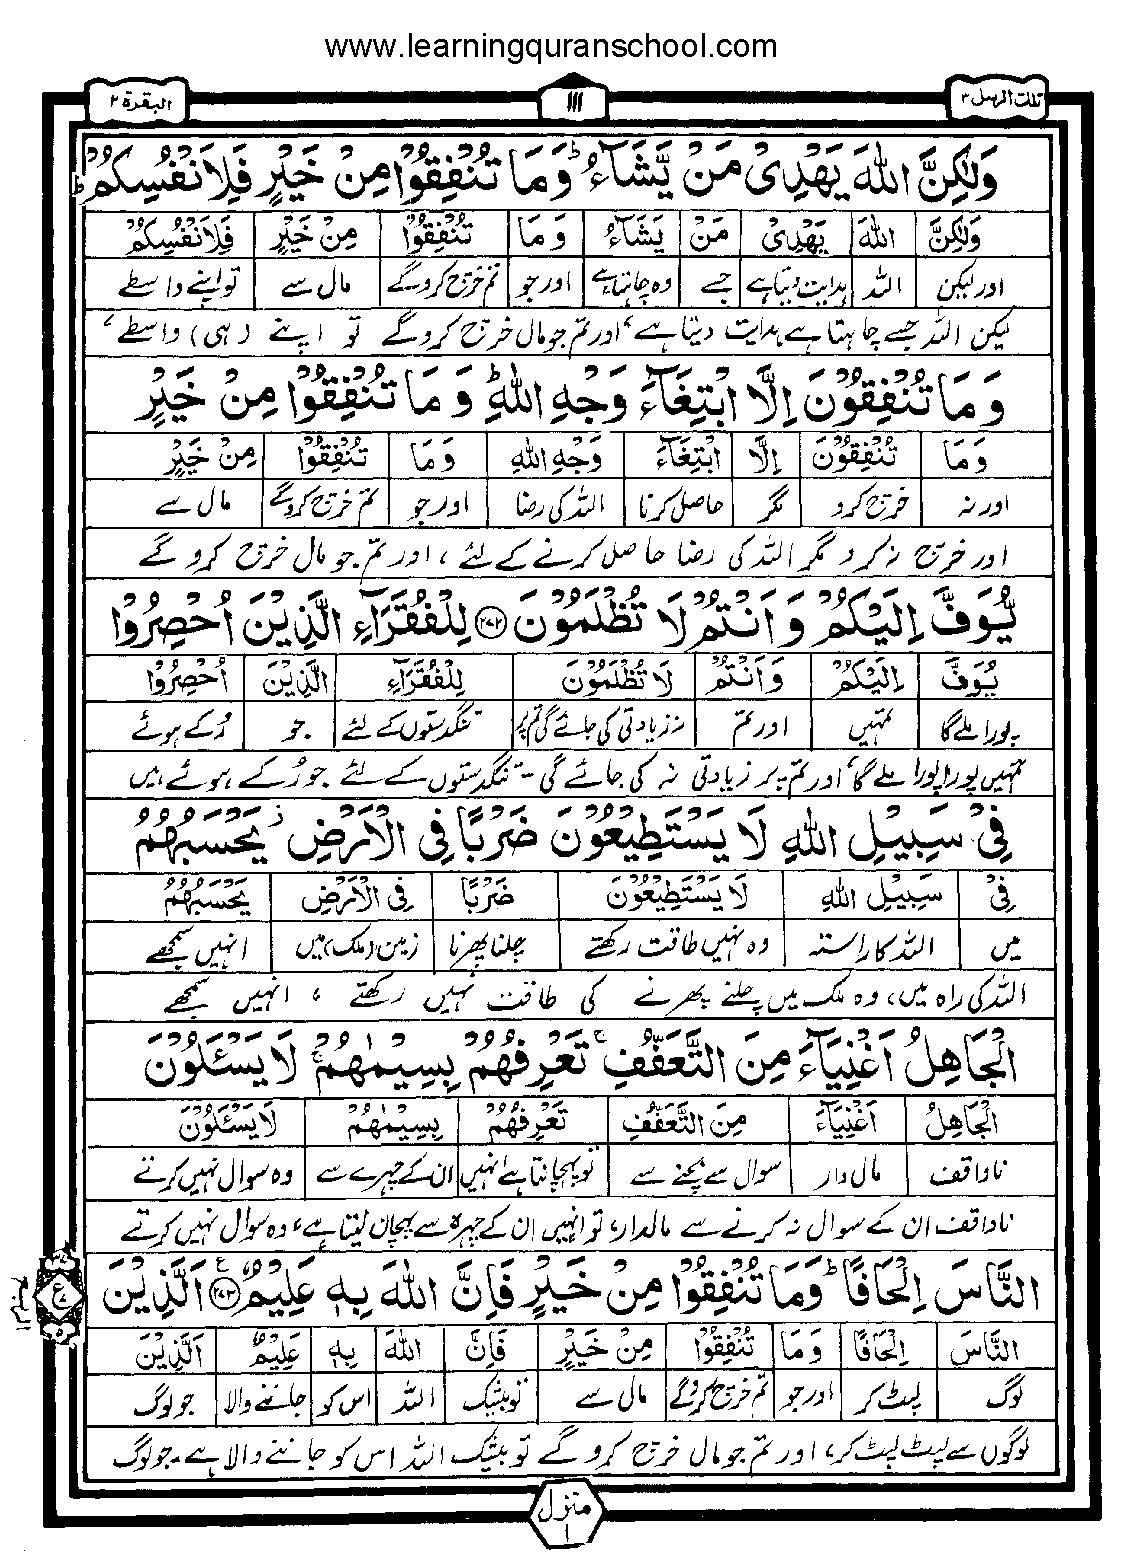 www.learningquranschool.com
تلك الرسل ٣
١١١
البقرة ٢
وَلٰكِنَّ اللّٰهَ يَهْدِىْ مَنْ يَّشَآءُ ؕ وَمَا تُنْفِقُوْا مِنْ خَيْرٍ فَلِاَنْفُسِكُمْ ؕ
وَلٰكِنَّ اللّٰهَ يَهْدِىْ مَنْ يَشَآءُ وَمَا تُنْفِقُوْا مِنْ خَيْرٍ فَلِاَنْفُسِكُمْ
اور لیکن اللہ ہدایت دیتا ہے جسے وہ چاہتا ہے اور جو تم خرچ کروگے مال سے تو اپنے واسطے
لیکن اللہ جسے چاہتا ہے ہدایت دیتا ہے، اور تم جو مال خرچ کروگے تو اپنے (ہی) واسطے،
وَمَا تُنْفِقُوْنَ اِلَّا ابْتِغَآءَ وَجْهِ اللّٰهِ ؕ وَمَا تُنْفِقُوْا مِنْ خَيْرٍ
وَمَا تُنْفِقُوْنَ اِلَّا ابْتِغَآءَ وَجْهِ اللّٰهِ وَمَا تُنْفِقُوْا مِنْ خَيْرٍ
اور نہ خرچ کرو مگر حاصل کرنا اللہ کی رضا اور جو تم خرچ کروگے مال سے
اور خرچ نہ کرو مگر اللہ کی رضا حاصل کرنے کے لئے، اور تم جو مال خرچ کرو گے
يُّوَفَّ اِلَيْكُمْ وَاَنْتُمْ لَا تُظْلَمُوْنَ ﴿٢٧٢﴾ لِلْفُقَرَآءِ الَّذِيْنَ اُحْصِرُوْا
يُوَفَّ اِلَيْكُمْ وَاَنْتُمْ لَا تُظْلَمُوْنَ لِلْفُقَرَآءِ الَّذِيْنَ اُحْصِرُوْا
پورا ملے گا تمہیں اور تم نہ زیادتی کی جائے گی تم پر تنگدستوں کے لئے جو رُکے ہوئے
تمہیں پورا پورا ملے گا، اور تم پر زیادتی نہ کی جائے گی۔ تنگدستوں کے لئے جو رُکے ہوئے ہیں
فِىْ سَبِيْلِ اللّٰهِ لَا يَسْتَطِيْعُوْنَ ضَرْبًا فِى الْاَرْضِ ز يَحْسَبُهُمُ
فِىْ سَبِيْلِ اللّٰهِ لَا يَسْتَطِيْعُوْنَ ضَرْبًا فِى الْاَرْضِ يَحْسَبُهُمُ
میں اللہ کا راستہ وہ نہیں طاقت رکھتے چلنا پھرنا زمین (ملک) میں انہیں سمجھے
اللہ کی راہ میں، وہ ملک میں چلنے پھرنے کی طاقت نہیں رکھتے، انہیں سمجھے
الْجَاهِلُ اَغْنِيَآءَ مِنَ التَّعَفُّفِ ۚ تَعْرِفُهُمْ بِسِيْمٰهُمْ ۚ لَا يَسْـَٔلُوْنَ
الْجَاهِلُ اَغْنِيَآءَ مِنَ التَّعَفُّفِ تَعْرِفُهُمْ بِسِيْمٰهُمْ لَا يَسْـَٔلُوْنَ
ناواقف مال دار سوال سے بچنے سے تو پہچانتا ہے انہیں ان کے چہرے سے وہ سوال نہیں کرتے
ناواقف ان کے سوال نہ کرنے سے مالدار، تو انہیں ان کے چہرہ سے پہچان لیتا ہے، وہ سوال نہیں کرتے
النَّاسَ اِلْحَافًا ؕ وَمَا تُنْفِقُوْا مِنْ خَيْرٍ فَاِنَّ اللّٰهَ بِهٖ عَلِيْمٌ ﴿٢٧٣﴾ اَلَّذِيْنَ
النَّاسَ اِلْحَافًا وَمَا تُنْفِقُوْا مِنْ خَيْرٍ فَاِنَّ اللّٰهَ بِهٖ عَلِيْمٌ اَلَّذِيْنَ
لوگ لپٹ کر اور جو تم خرچ کروگے مال سے تو بیشک اللہ اس کو جاننے والا جو لوگ
لوگوں سے لپٹ لپٹ کر، اور تم جو مال خرچ کرو گے تو بیشک اللہ اس کو جاننے والا ہے۔ جو لوگ
منزل ١